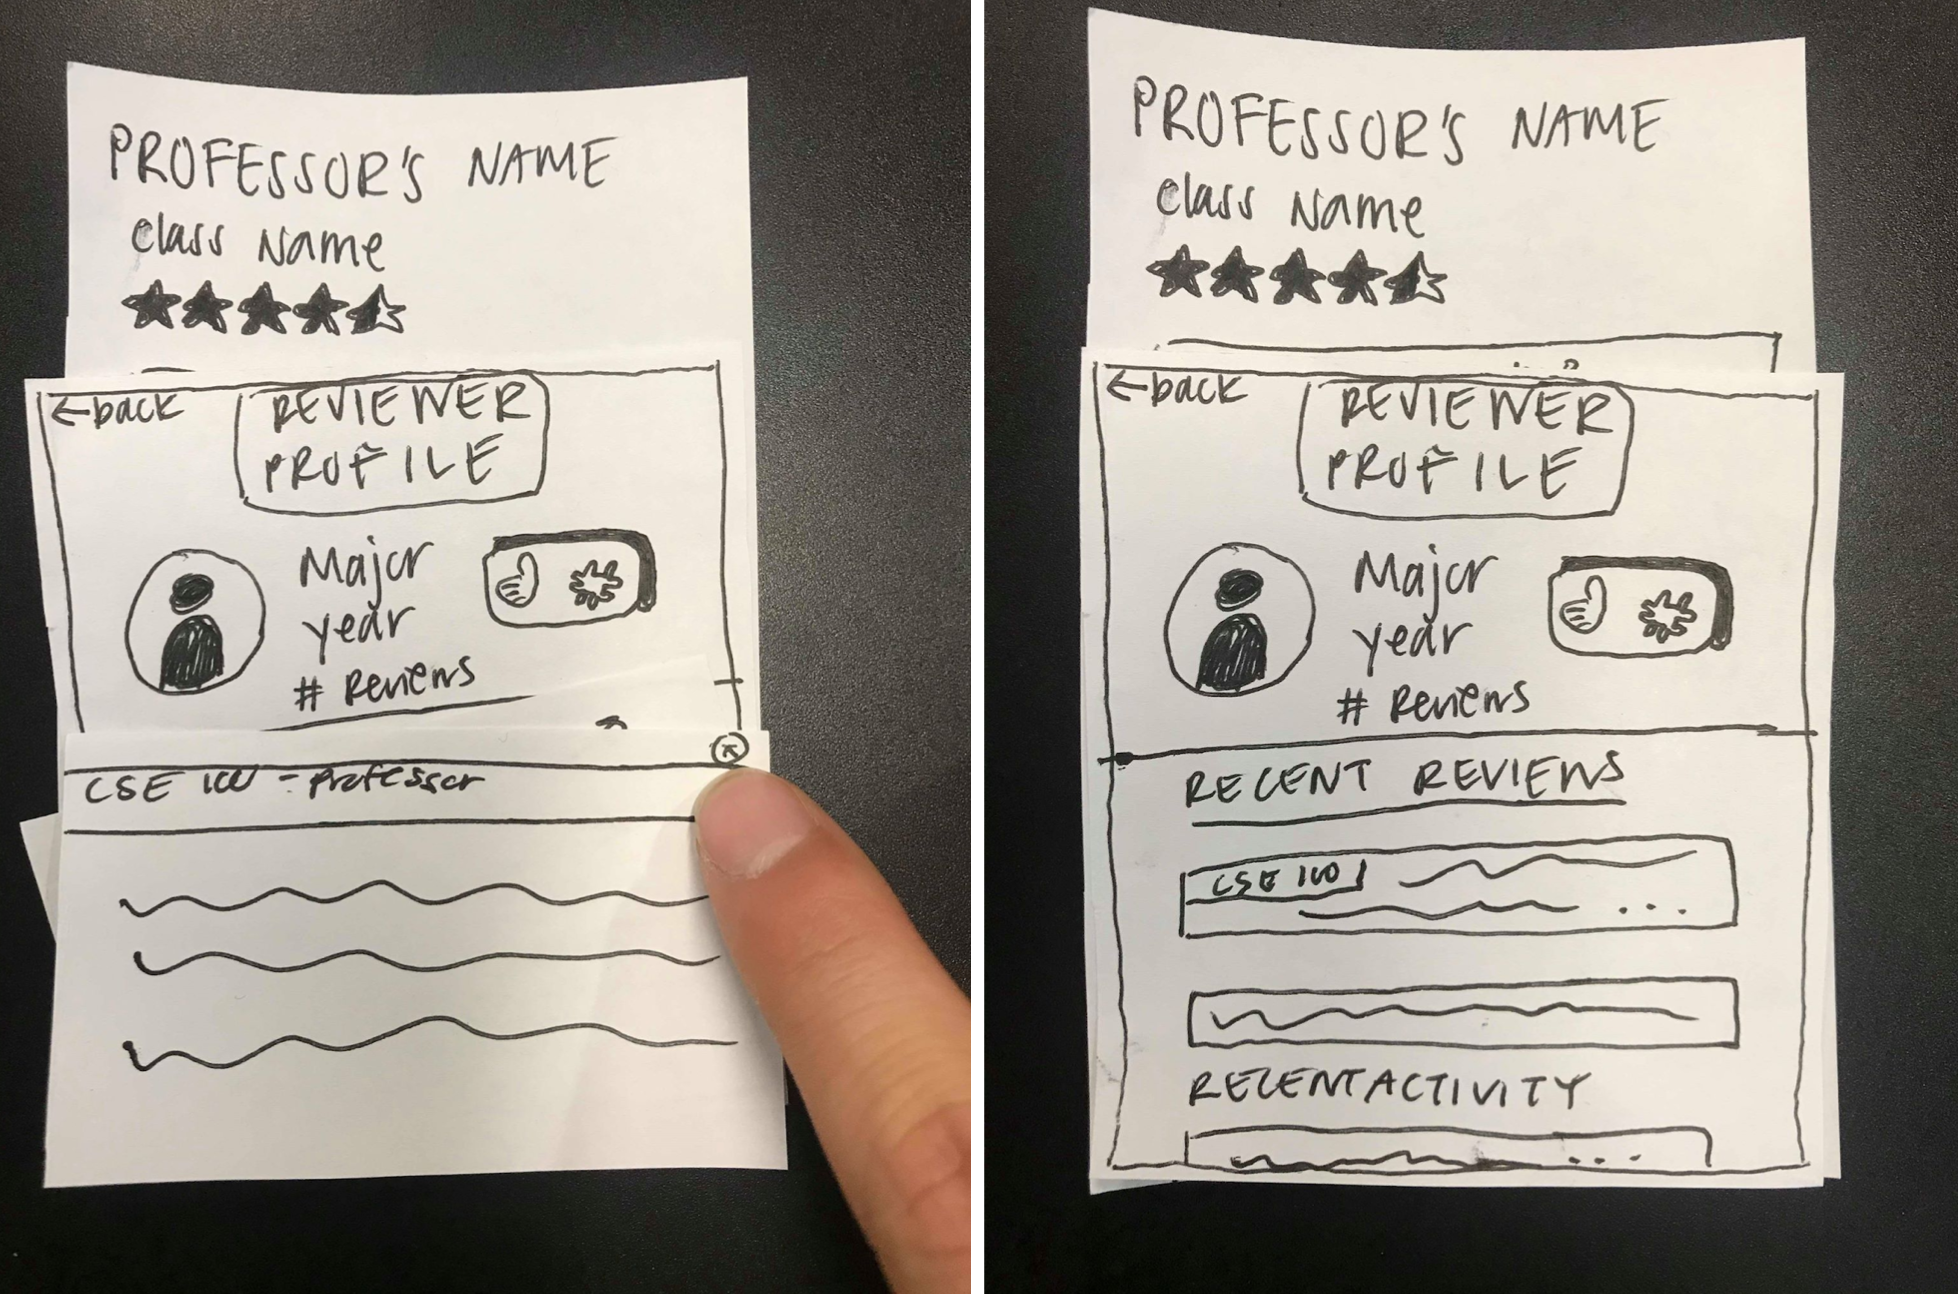 PROFESSOR'S NAME
Class Name
←back
REVIEWER
PROFILE
Major
year
# Reviews
CSE 100 - Professor
PROFESSOR'S NAME
Class Name
←back
REVIEWER
PROFILE
Major
year
# Reviews
RECENT REVIEWS
CSE 100
RECENT ACTIVITY